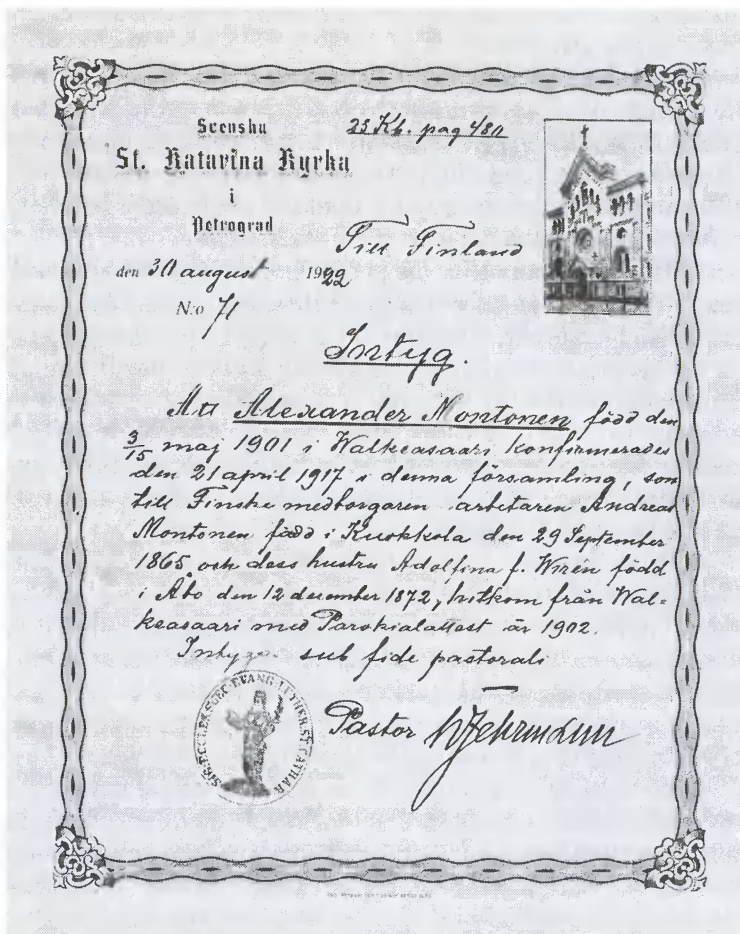 Svenska
St. Katarina Kyrka
i
Petrograd
23 Kb. pag 480
Till Finland
den 30 august 1922
N:o 71
Intyg.
Att Alexander Montonen född den
3/15 maj 1901 i Walkeasaari konfirmerades
den 21 april 1917 i denna församling, son
till Finske medborgaren arbetaren Andreas
Montonen född i Kuokkola den 29 September
1865 och dess hustru Adolfina f. Wirén född
i Åbo den 12 december 1872, hitkom från Wal=
keasaari med Parokialattest år 1902.
Intygar sub fide pastorali
Pastor
SIG. ECCLES. SVEC. EVANG. LUTHER. ST. CATHAR